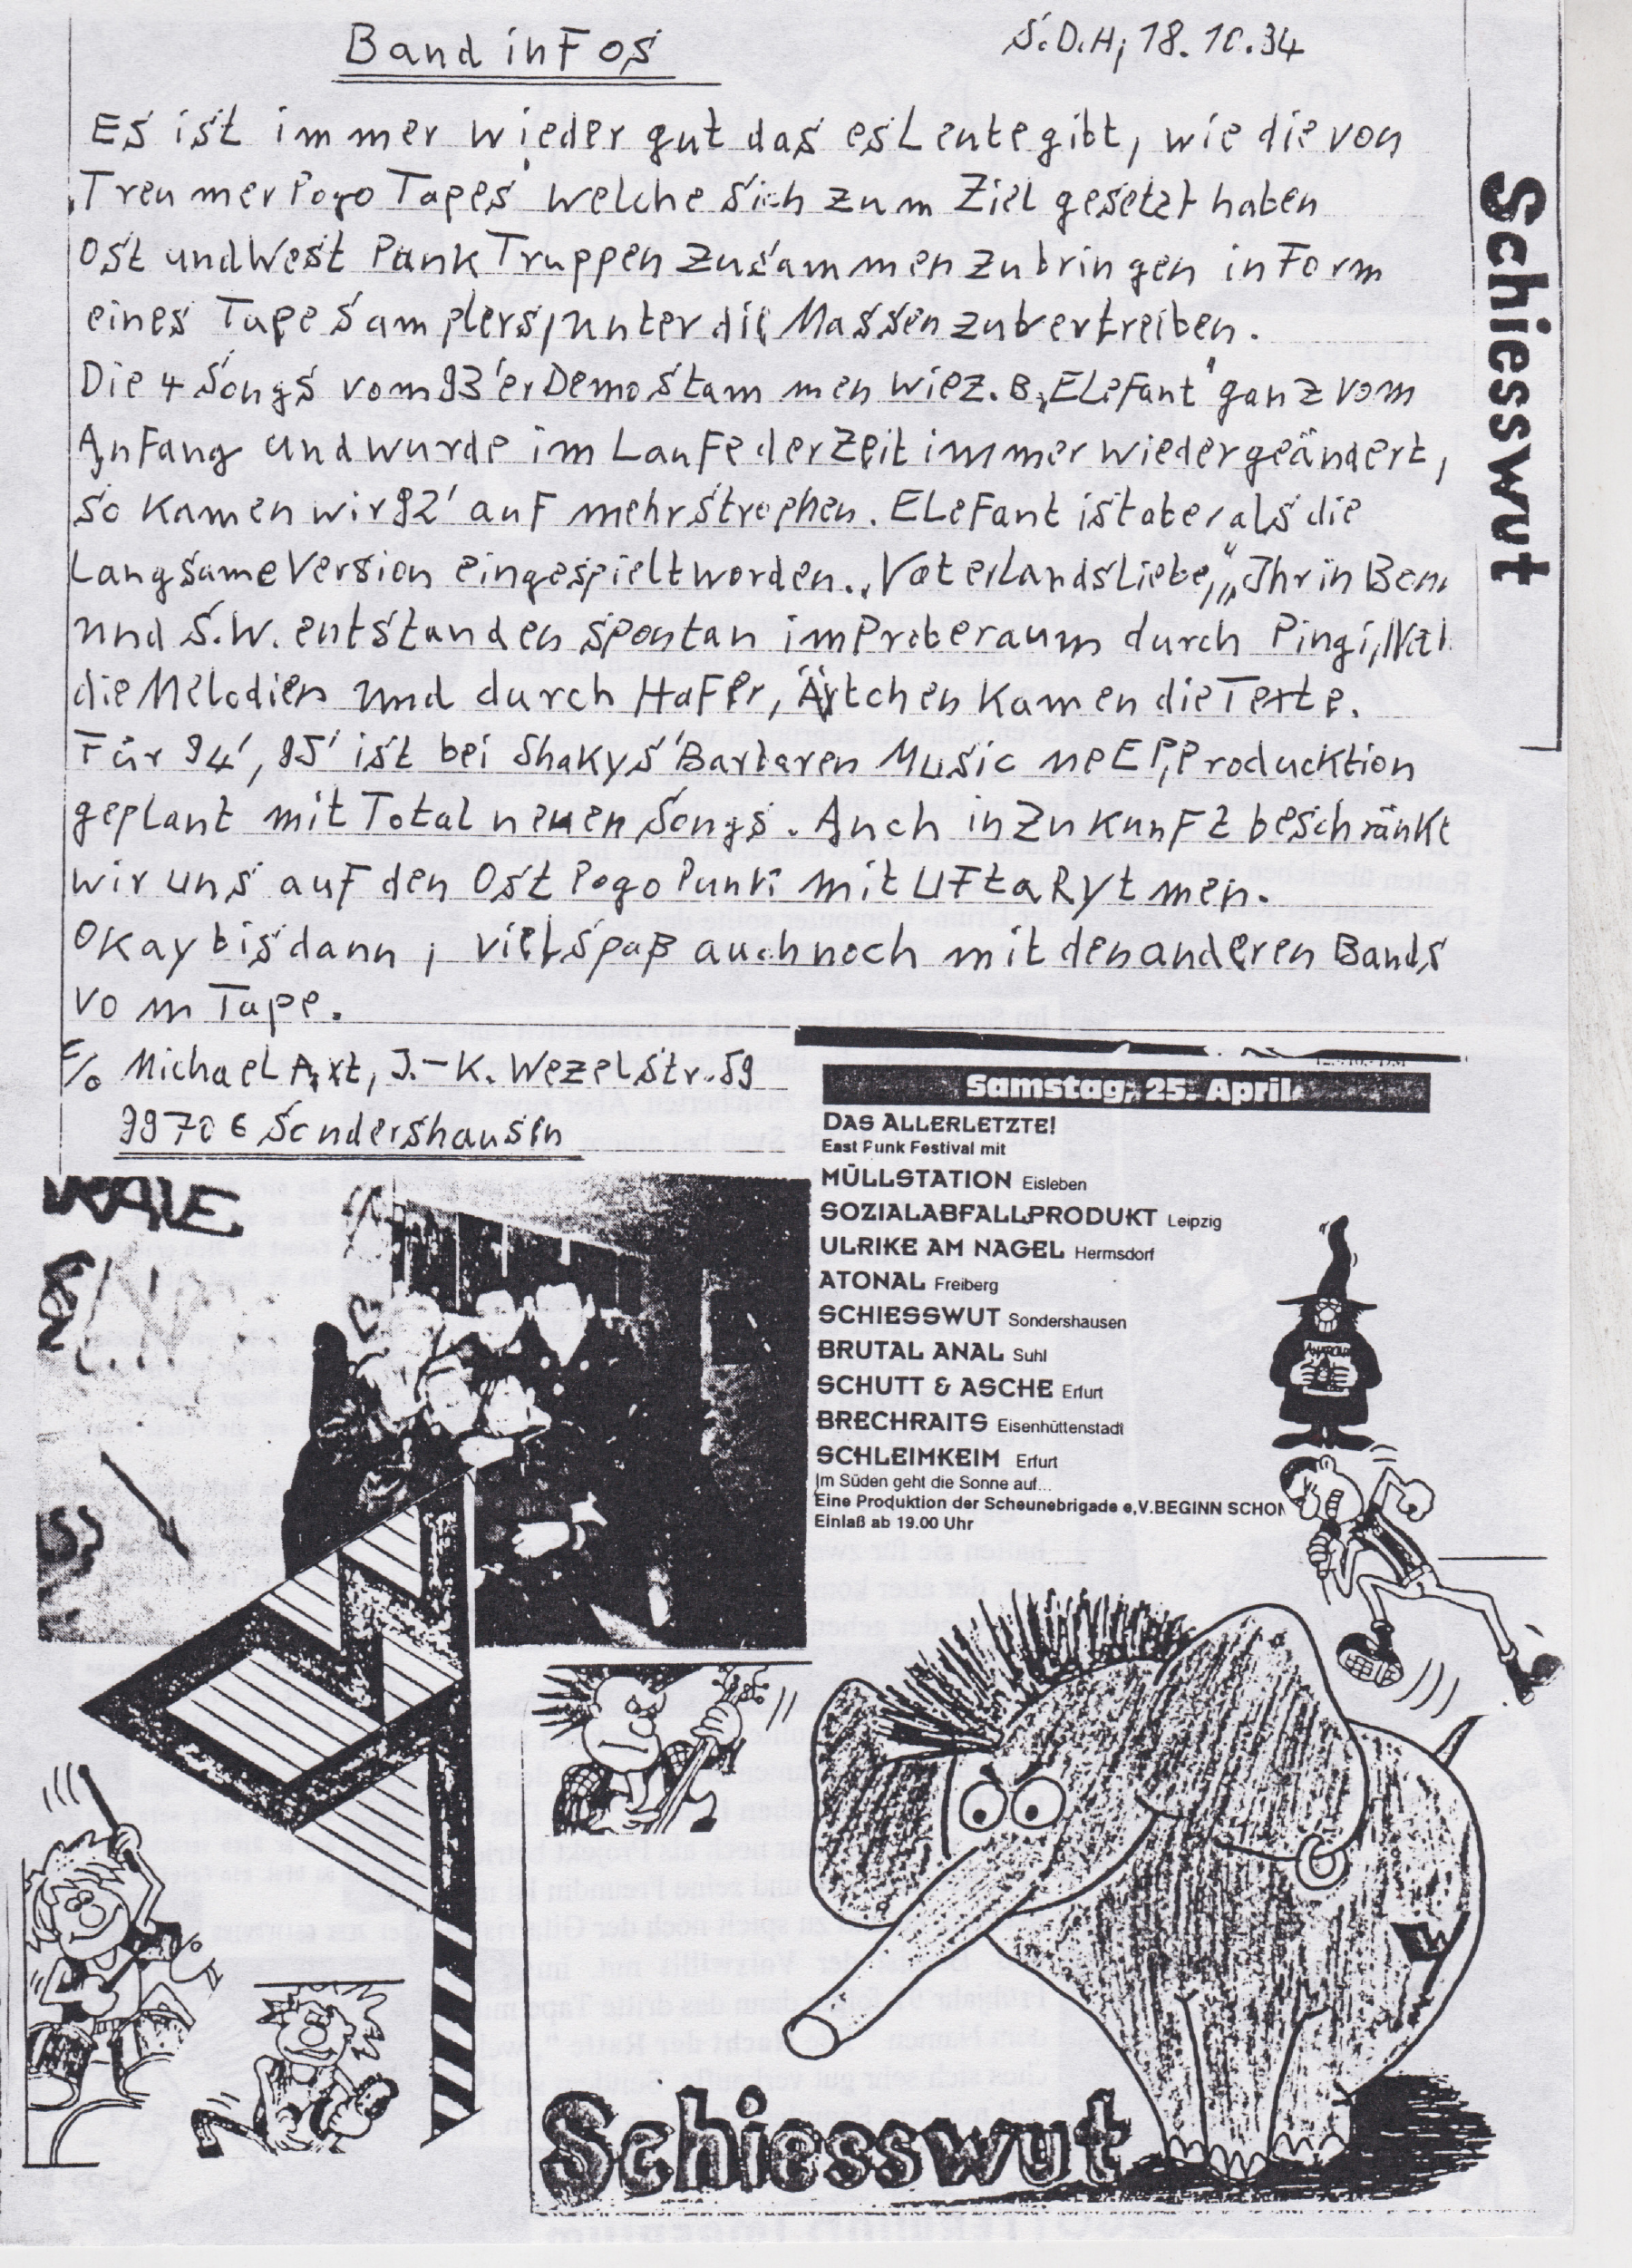 Band infos
S.D.H, 18.10.94
Es ist immer wieder gut das es Leute gibt, wie die von
"Treumer Pogo Tapes" welche sich zum Ziel gesetzt haben
Ost und West Punk Truppen zusammen zu bringen in Form
eines Tape Samplers, unter die Massen zu vertreiben.
Die 4 Songs vom 93'er Demo stammen wie z.B. "Elefant" ganz vom
Anfang und wurde im Laufe der Zeit immer wieder geändert,
so kamen wir 92' auf mehr strophen. Elefant ist aber als die
Langsame Version eingespielt worden. "Vaterlandsliebe", "Ihr in
und S.W. entstanden spontan im Proberaum durch Pingi,
die Melodien und durch Hafer, Äxtchen kamen die Texte.
Für 94', 95' ist bei Shakys' Barbaren Music ne EP, Producktion
geplant mit Total neuen Songs. Auch in Zukunft beschränkt
wir uns auf den Ost Pogo Punk mit Ufta Rytmen.
Okay bis dann, viel spaß auch noch mit den anderen Bands
vom Tape.
c/o Michael Axt, J.-K. Wezel Str. 59
99706 Sondershausen
Schiesswut
Samstag, 25. April
DAS ALLERLETZTE!
East Punk Festival mit
MÜLLSTATION Eisleben
SOZIALABFALLPRODUKT Leipzig
ULRIKE AM NAGEL Hermsdorf
ATONAL Freiberg
SCHIESSWUT Sondershausen
BRUTAL ANAL Suhl
SCHUTT & ASCHE Erfurt
BRECHRAITS Eisenhüttenstadt
SCHLEIMKEIM Erfurt
Im Süden geht die Sonne auf...
Eine Produktion der Scheunebrigade e,V.BEGINN SCHON
Einlaß ab 19.00 Uhr
Schiesswut